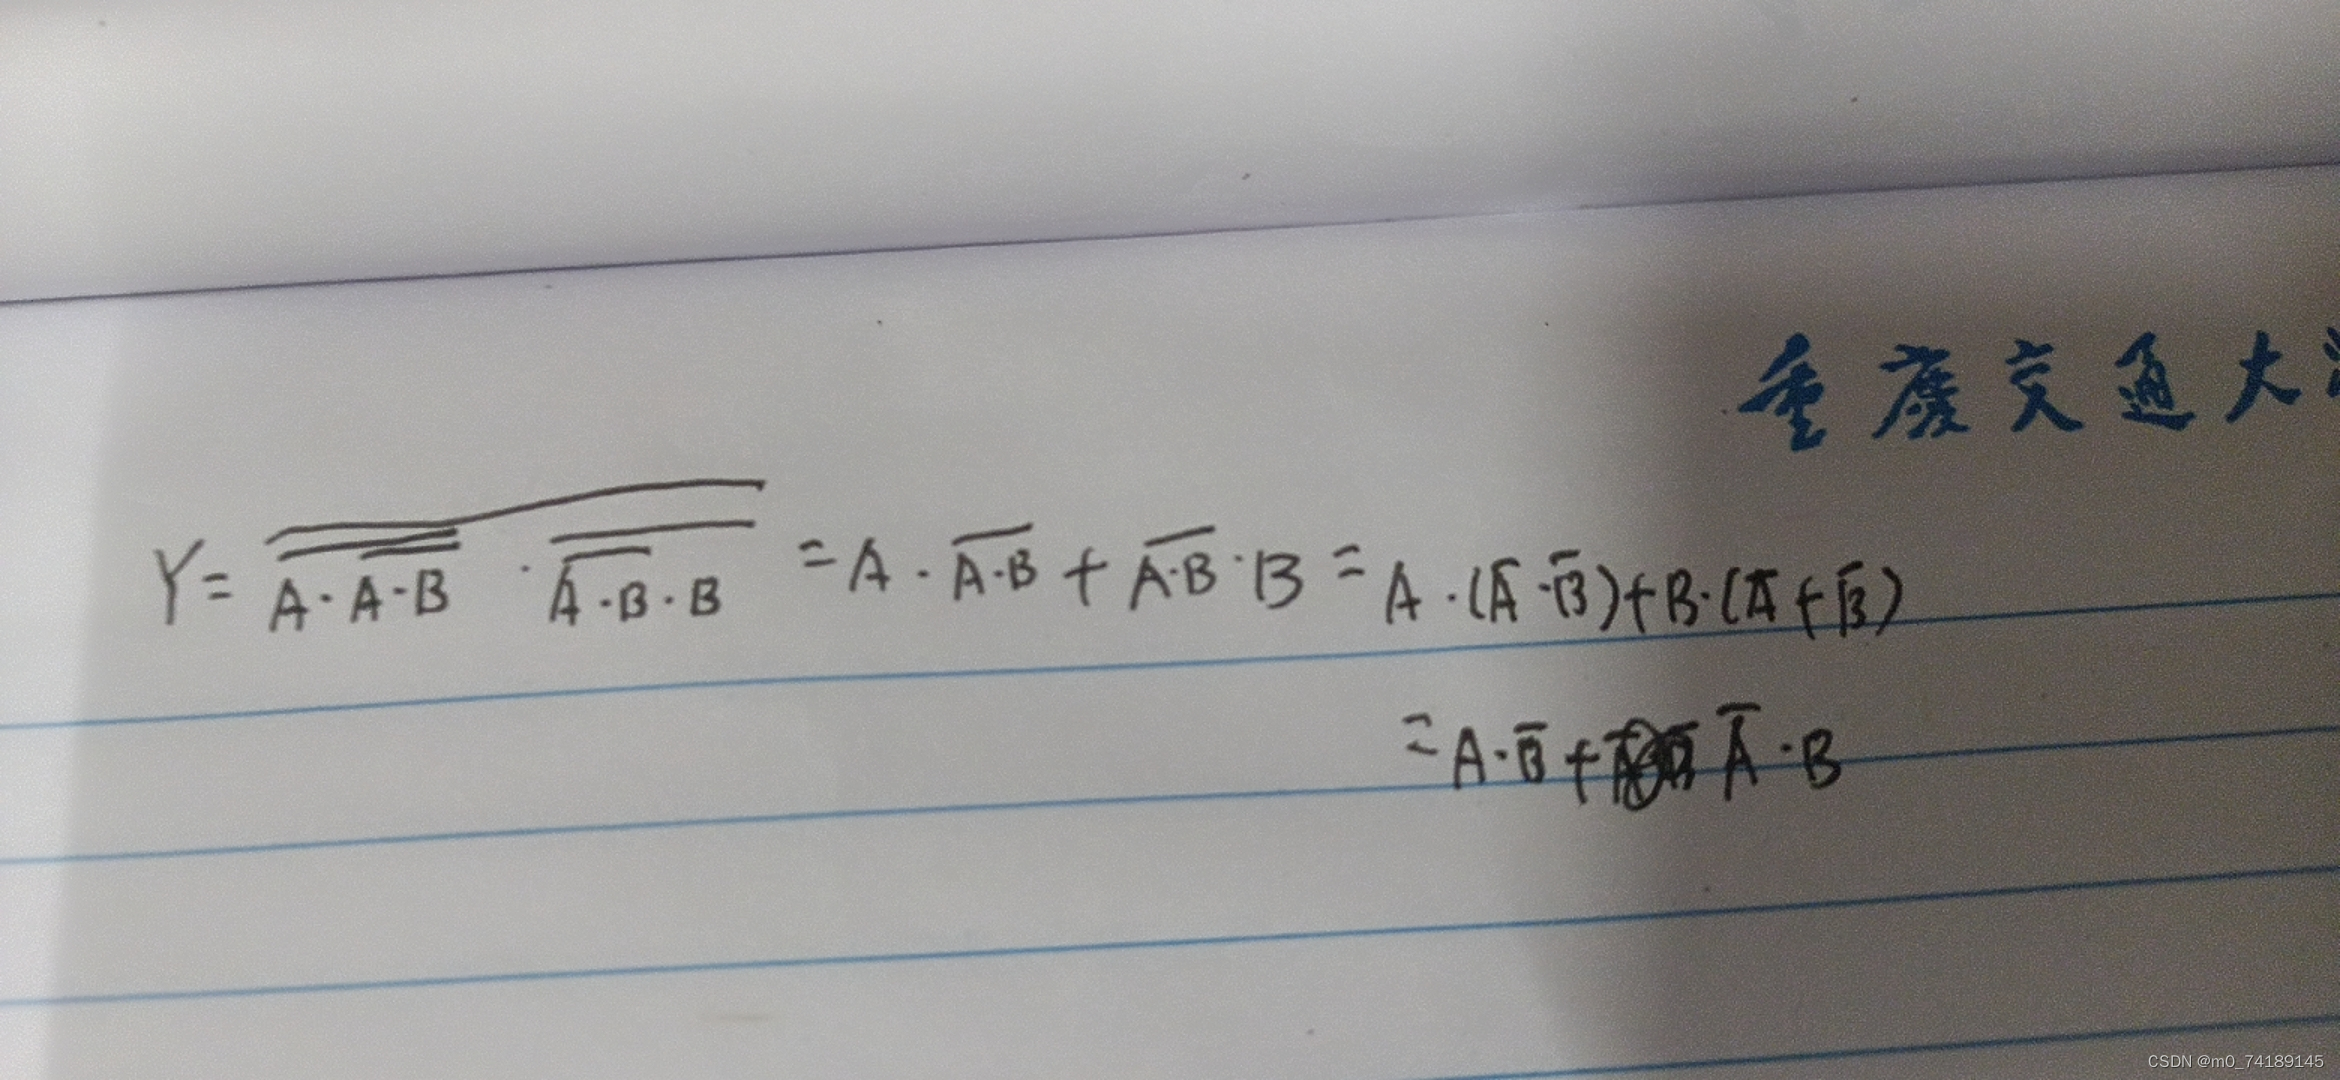 重慶交通大
Y = \overline{\overline{A·\overline{A·B}} · \overline{\overline{A·B}·B}} = A·\overline{A·B} + \overline{A·B}·B = A·(\overline{A}·\overline{B})+B·(\overline{A}+\overline{B})
= A·\overline{B} + \overline{A}·B
CSDN @m0_74189145